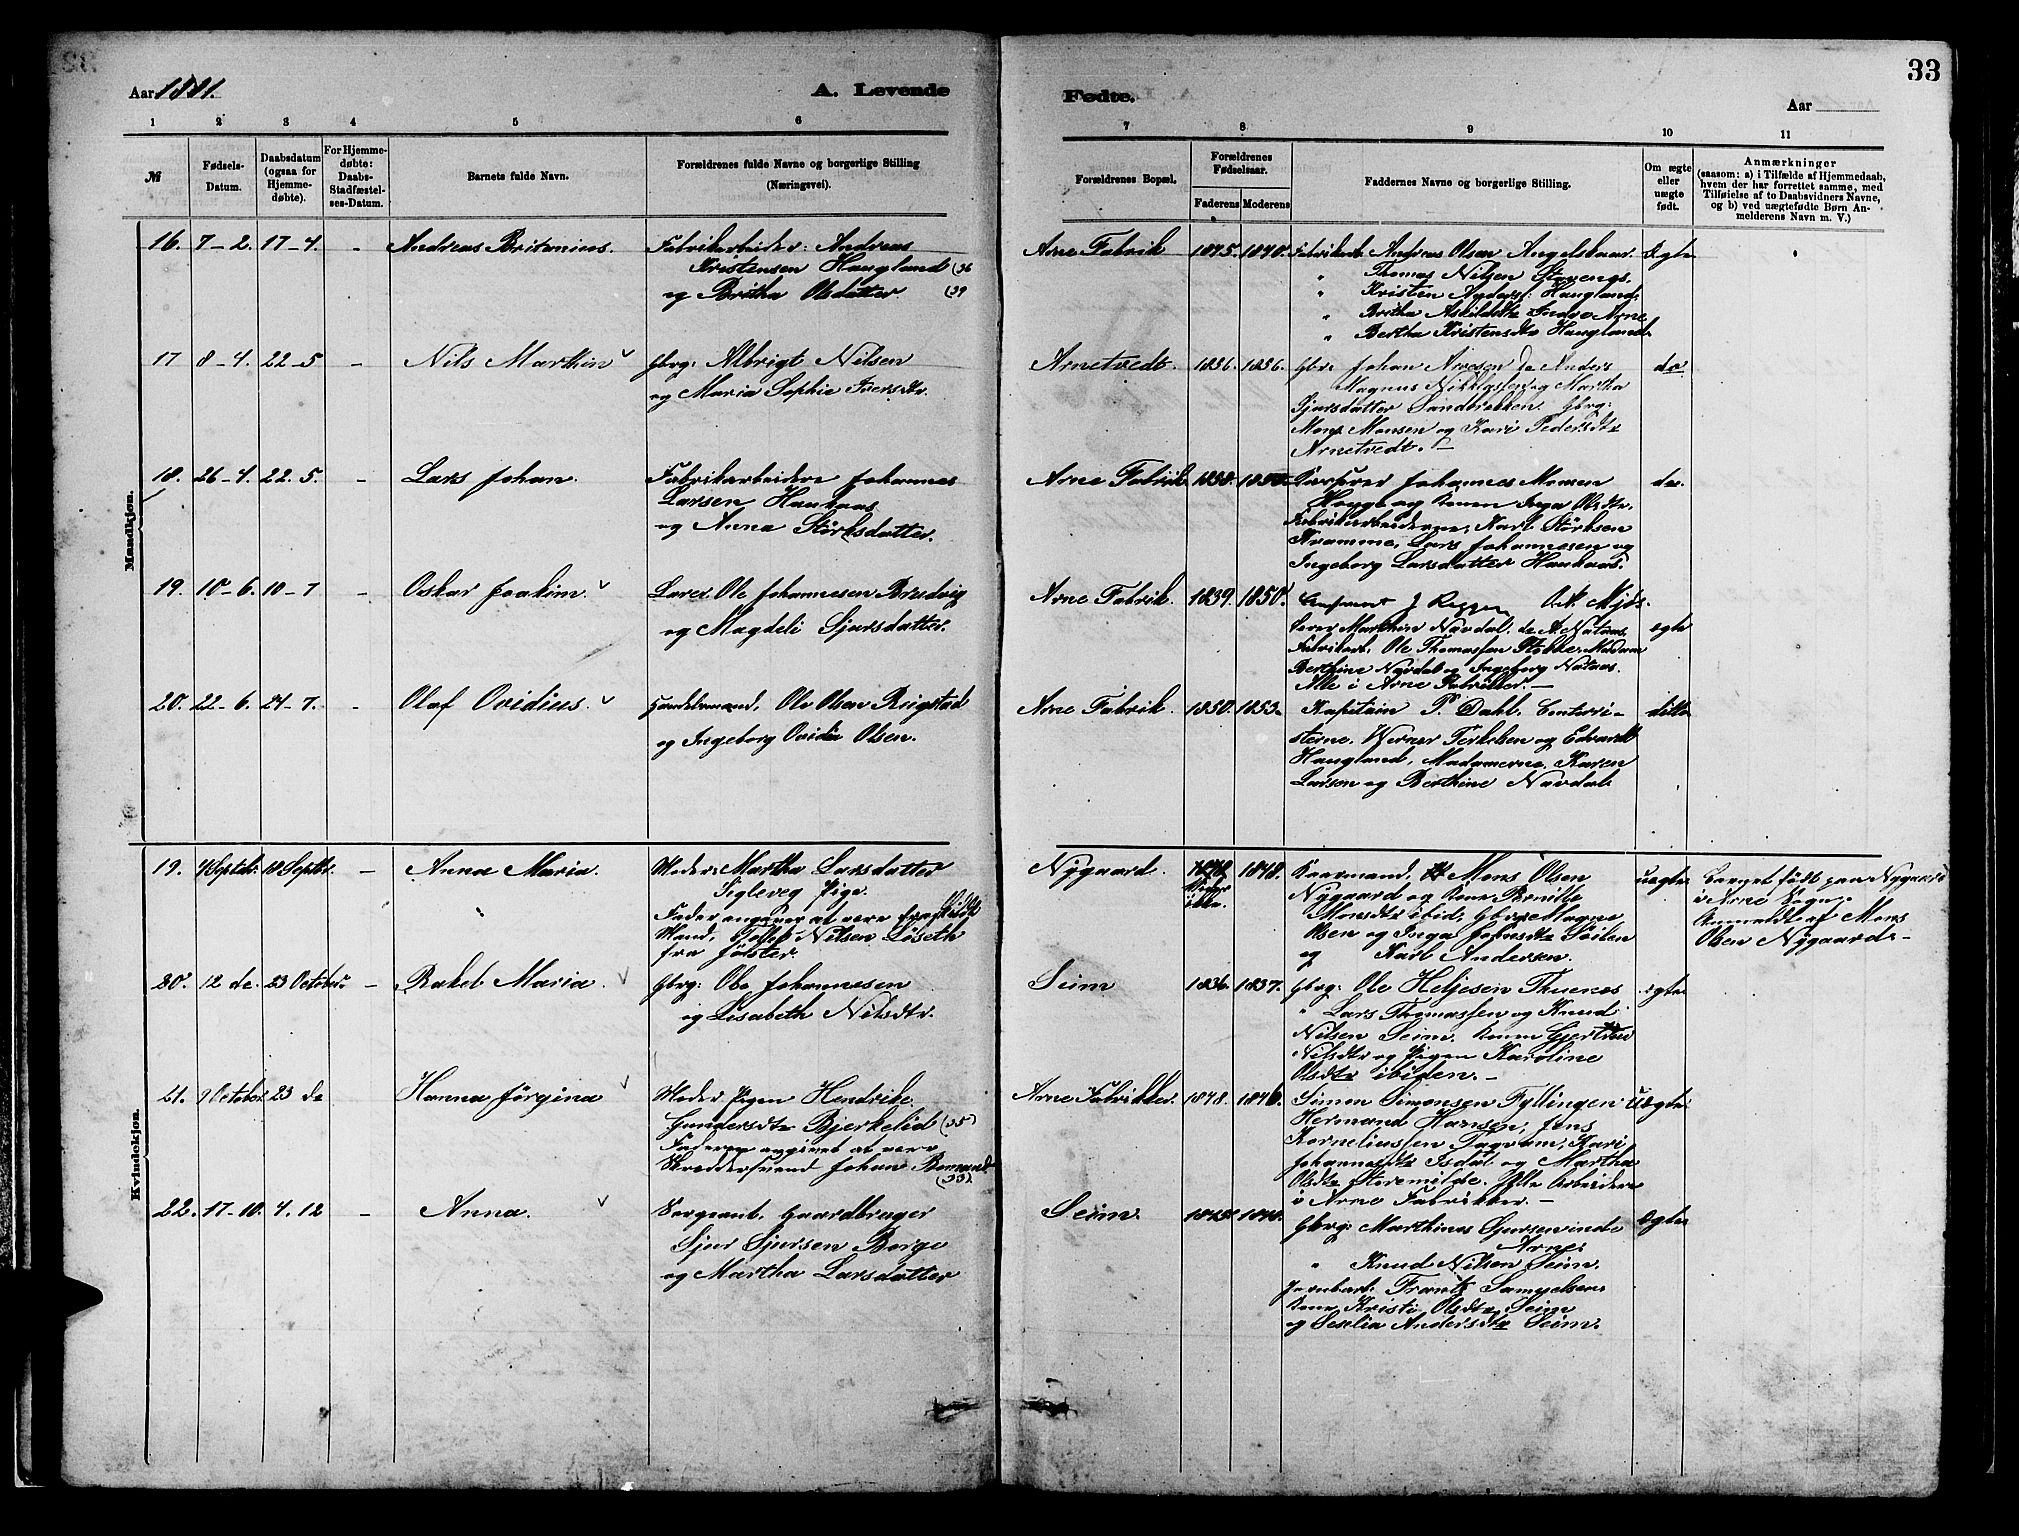 33
Aar 1881.
A. Levende
Fødte.
Aar
1 2 3 4 5 6 7 8 9 10 11
№
Fødsels-
Datum.
Daabsdatum
(ogsaa for
Hjemme-
døbte).
For Hjemme-
døbte:
Daabs-
Stadfæstel-
ses-Datum.
Barnets fulde Navn.
Forældrenes fulde Navne og borgerlige Stilling
(Næringsvei).
Forældrenes Bopæl.
Forældrenes
Fødselsaar.
Faderens Moderens
Faddernes Navne og borgerlige Stilling.
Om ægte
eller
uægte
født.
Anmærkninger
(saasom: a) i Tilfælde af Hjemmedaab,
hvem der har forrettet samme, med
Tilføielse af to Daabsvidners Navne,
og b) ved uægtefødte Børn An-
melderens Navn m. V.)
Mandkjøn.
16. 7-2. 17-4. - Andreas Britanius.
Fabrikarbeider: Andreas
Kristensen Haugland (36
og Britha Olsdatter (39
Arne Fabrik 1845. 1840.
Fabrikarb. Andreas Olsen
" Thomas Nilsen
" Kristen Anders: Haugland
" Britha Indre Arne
" Bertha Kristensdtr Haugland.
Ægte
17 8-4. 22-5 - Nils Marthin
Gbrg: Albrigt Nilsen
og Maria Sophie Iversdtr.
Arnetvedt. 1836. 1836.
Gbr. Johan Arnesen de Anders
Magnus og Martha
Sjursdatter Gbrg:
Mons Monsen og Kari Pedersdtr
Arnetvedt.-
do
18. 26-4. 22.5. - Lars Johan.
Fabrikarbeider Johannes
Larsen Haukaas
og Anna Störksdatter.
Arne Fabrik 1838.
Johannes Monsen
og Konen Inga Olsdtr.
Fabrikarbeiderne, Karl Störksen
Kvamme, Lars Johannesen og
Ingeborg Larsdatter Haukaas.
do.
19. 10-6. 10-7 - Oskar Joakim.
Lærer. Ole Johannesen Bredvig
og Magdeli Sjursdatter.
Arne Fabrik. 1839. 1850.
Lærer Marthin Navdal. de A. Nataas
Fabrikarb. Ole Thomassen Madam
Berthine Navdal og Ingeborg Nataas.
Alle i Arne Fabrikker.-
ægte
20. 22-6. 24-7. - Olaf Ovidius.
Handelsmand, Ole Olsen Reigstad
og Ingeborg Ovidia Olsen.
Arne Fabrik. 1850. 1853.
Kapitain P. Dahl. Contori-
sterne. Werner Terkelsen og Edvardt
Haugland, Madamerne, Karen
Larsen og Berthine Navdal
ditto
Kvindekjøn.
19. 18 Septbr. - Anna Maria.
Moder: Martha Larsdatter
Pige.
Fader angives at være
Mand, Nilsen Løseth
fra Jølster.
Nygaard. 1848.
Kaarmand, Mons Olsen
Nygaard og Kone Bernille
Monsdtr ibid, Gbrg Magne
Olsen og Inga
og Karl Andersen.
uegte
Barnet født paa Nygaard
i Arne Sogn.
Anmeldt af Mons
Olsen Nygaard.-
20. 12 de. 23 October. - Rakel Maria
Gbrg: Ole Johannesen
og Lisabeth Nilsdtr.
Seim 1836. 1837.
Gbrg: Ole Heljesen Thuenes
" Lars Thomassen og Knud
Nilsen Seim. Konen Gjertrud
Nilsdtr og Pigen Karoline
Olsdtr ibiden.-
ægte
21. October 23 de Hanna Jörgina
Moder Pigen Hendrike
Gundersdtr Bjerkelid (35)
Faderen angivet at være
Skreddersvend Johan
(33).
Arne Fabrikker. 1848. 1846.
Simon Simonsen Fyllingen
Hermand Hansen, Jens
Korneliussen Kari
Johannesdtr Isdal og Martha
Olsdtr Storemilde. Alle Arbeidere
i Arne Fabrikker.-
Uægte
22. 17-10. 4.12 - Anna.
Sergeant, Gaardbruger
Sjur Sjursen Borge
og Martha Larsdatter
Seim.
Gbrg: Marthinus Sjursen inde
Arne.
" Knud Nilsen Seim.
Frantz Samuelsen
Kone Kristi Olsdtr Seim
og Seselia Andersdtr Seim.
Ægte